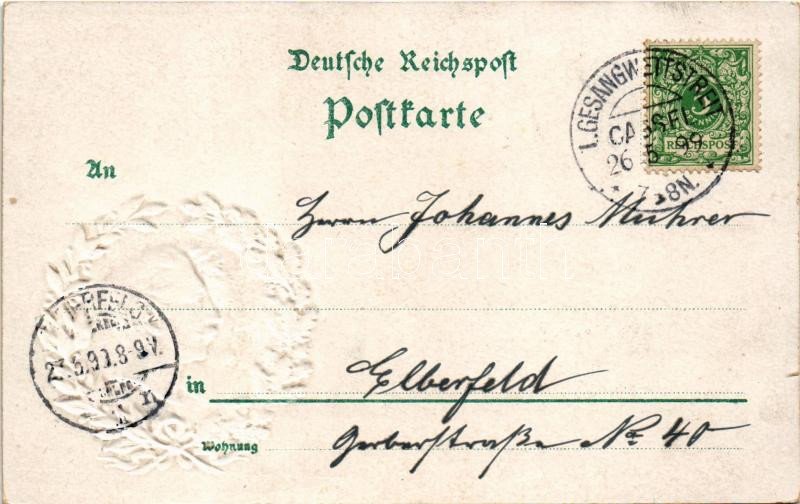 Deutsche Reichspost
Postkarte
1. GESANGWETTSTREIT
CASSEL
26 5 99
7 8N.
REICHSPOST
An
Herrn Johannes Muhrer
27.5.99.8-9V.
in Elberfeld
Wohnung Gerberstraße No 40